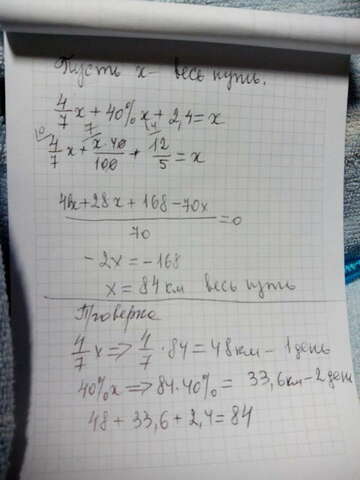 Пусть x - весь путь.
4/7 x + 40% x + 2,4 = x
10 7 14
4/7 x + x·40/100 + 12/5 = x
40x + 28x + 168 - 70x / 70 = 0
-2x = -168
x = 84 км весь путь
Проверка
4/7 x => 4/7 · 84 = 48 км - 1 день
40% x => 84·40% = 33,6 км - 2 день
48 + 33,6 + 2,4 = 84